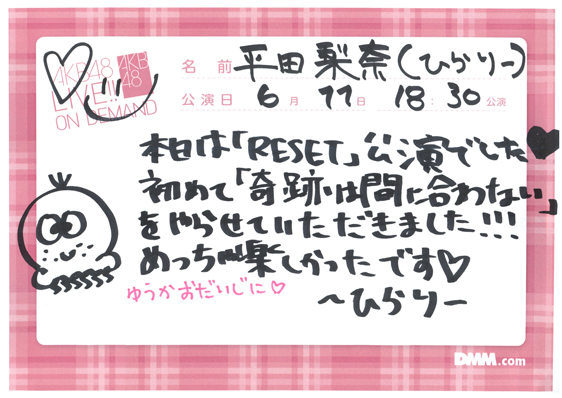 AKB48
LIVE!!
ON DEMAND
AKB
48
名前 平田梨奈(ひらりー)
公演日 6月11日 18:30公演
本日は「RESET」公演でした♥
初めて「奇跡は間に合わない」
をやらせていただきました!!!
めっちゃ楽しかったです♡
ゆうかおだいじに♡
〜ひらりー
DMM.com